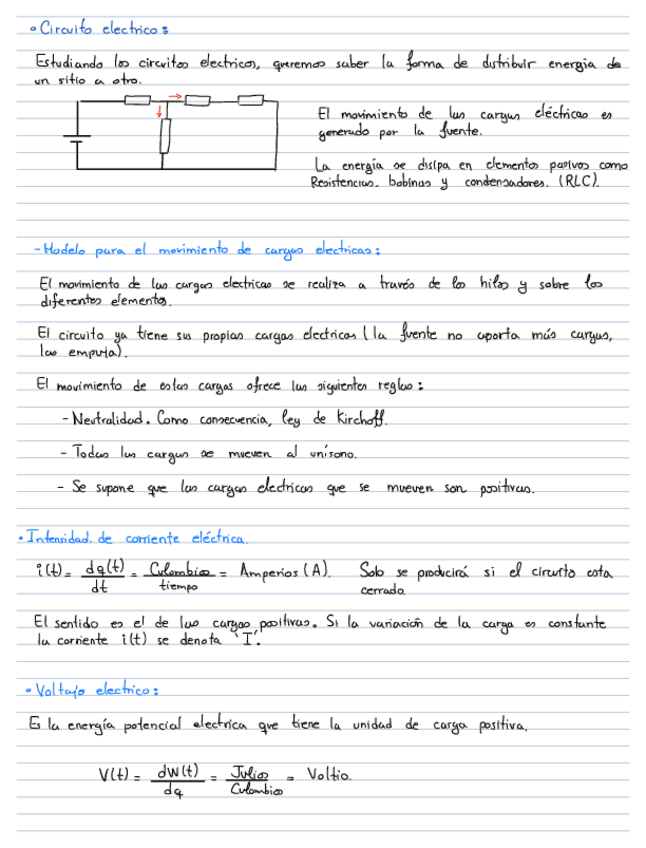 • Circuito electrico:
Estudiando los circuitos electricos, queremos saber la forma de distribuir energia de
un sitio a otro.
El movimiento de las cargas eléctricas es
generado por la fuente.
La energía se disipa en elementos pasivos como
Resistencias. bobinas y condensadores. (RLC).
- Modelo para el movimiento de cargas electricas:
El movimiento de las cargas electricas se realiza a través de los hilos y sobre los
diferentes elementos.
El circuito ya tiene sus propias cargas electricas (la fuente no aporta más cargas,
las empuja).
El movimiento de estas cargas ofrece las siguientes reglas:
- Neutralidad. Como consecuencia, ley de Kirchoff.
- Todas las cargas se mueven al unísono.
- Se supone que las cargas electricas que se mueven son positivas.
• Intensidad. de corriente eléctrica.
i(t) = dq(t)/dt = Culombios/tiempo = Amperios (A). Solo se producirá si el circuito esta
cerrado.
El sentido es el de las cargas positivas. Si la variación de la carga es constante
la corriente i(t) se denota 'I'.
• Voltaje electrico:
Es la energía potencial electrica que tiene la unidad de carga positiva.
V(t) = dW(t)/dq = Julios/Culombios = Voltio.